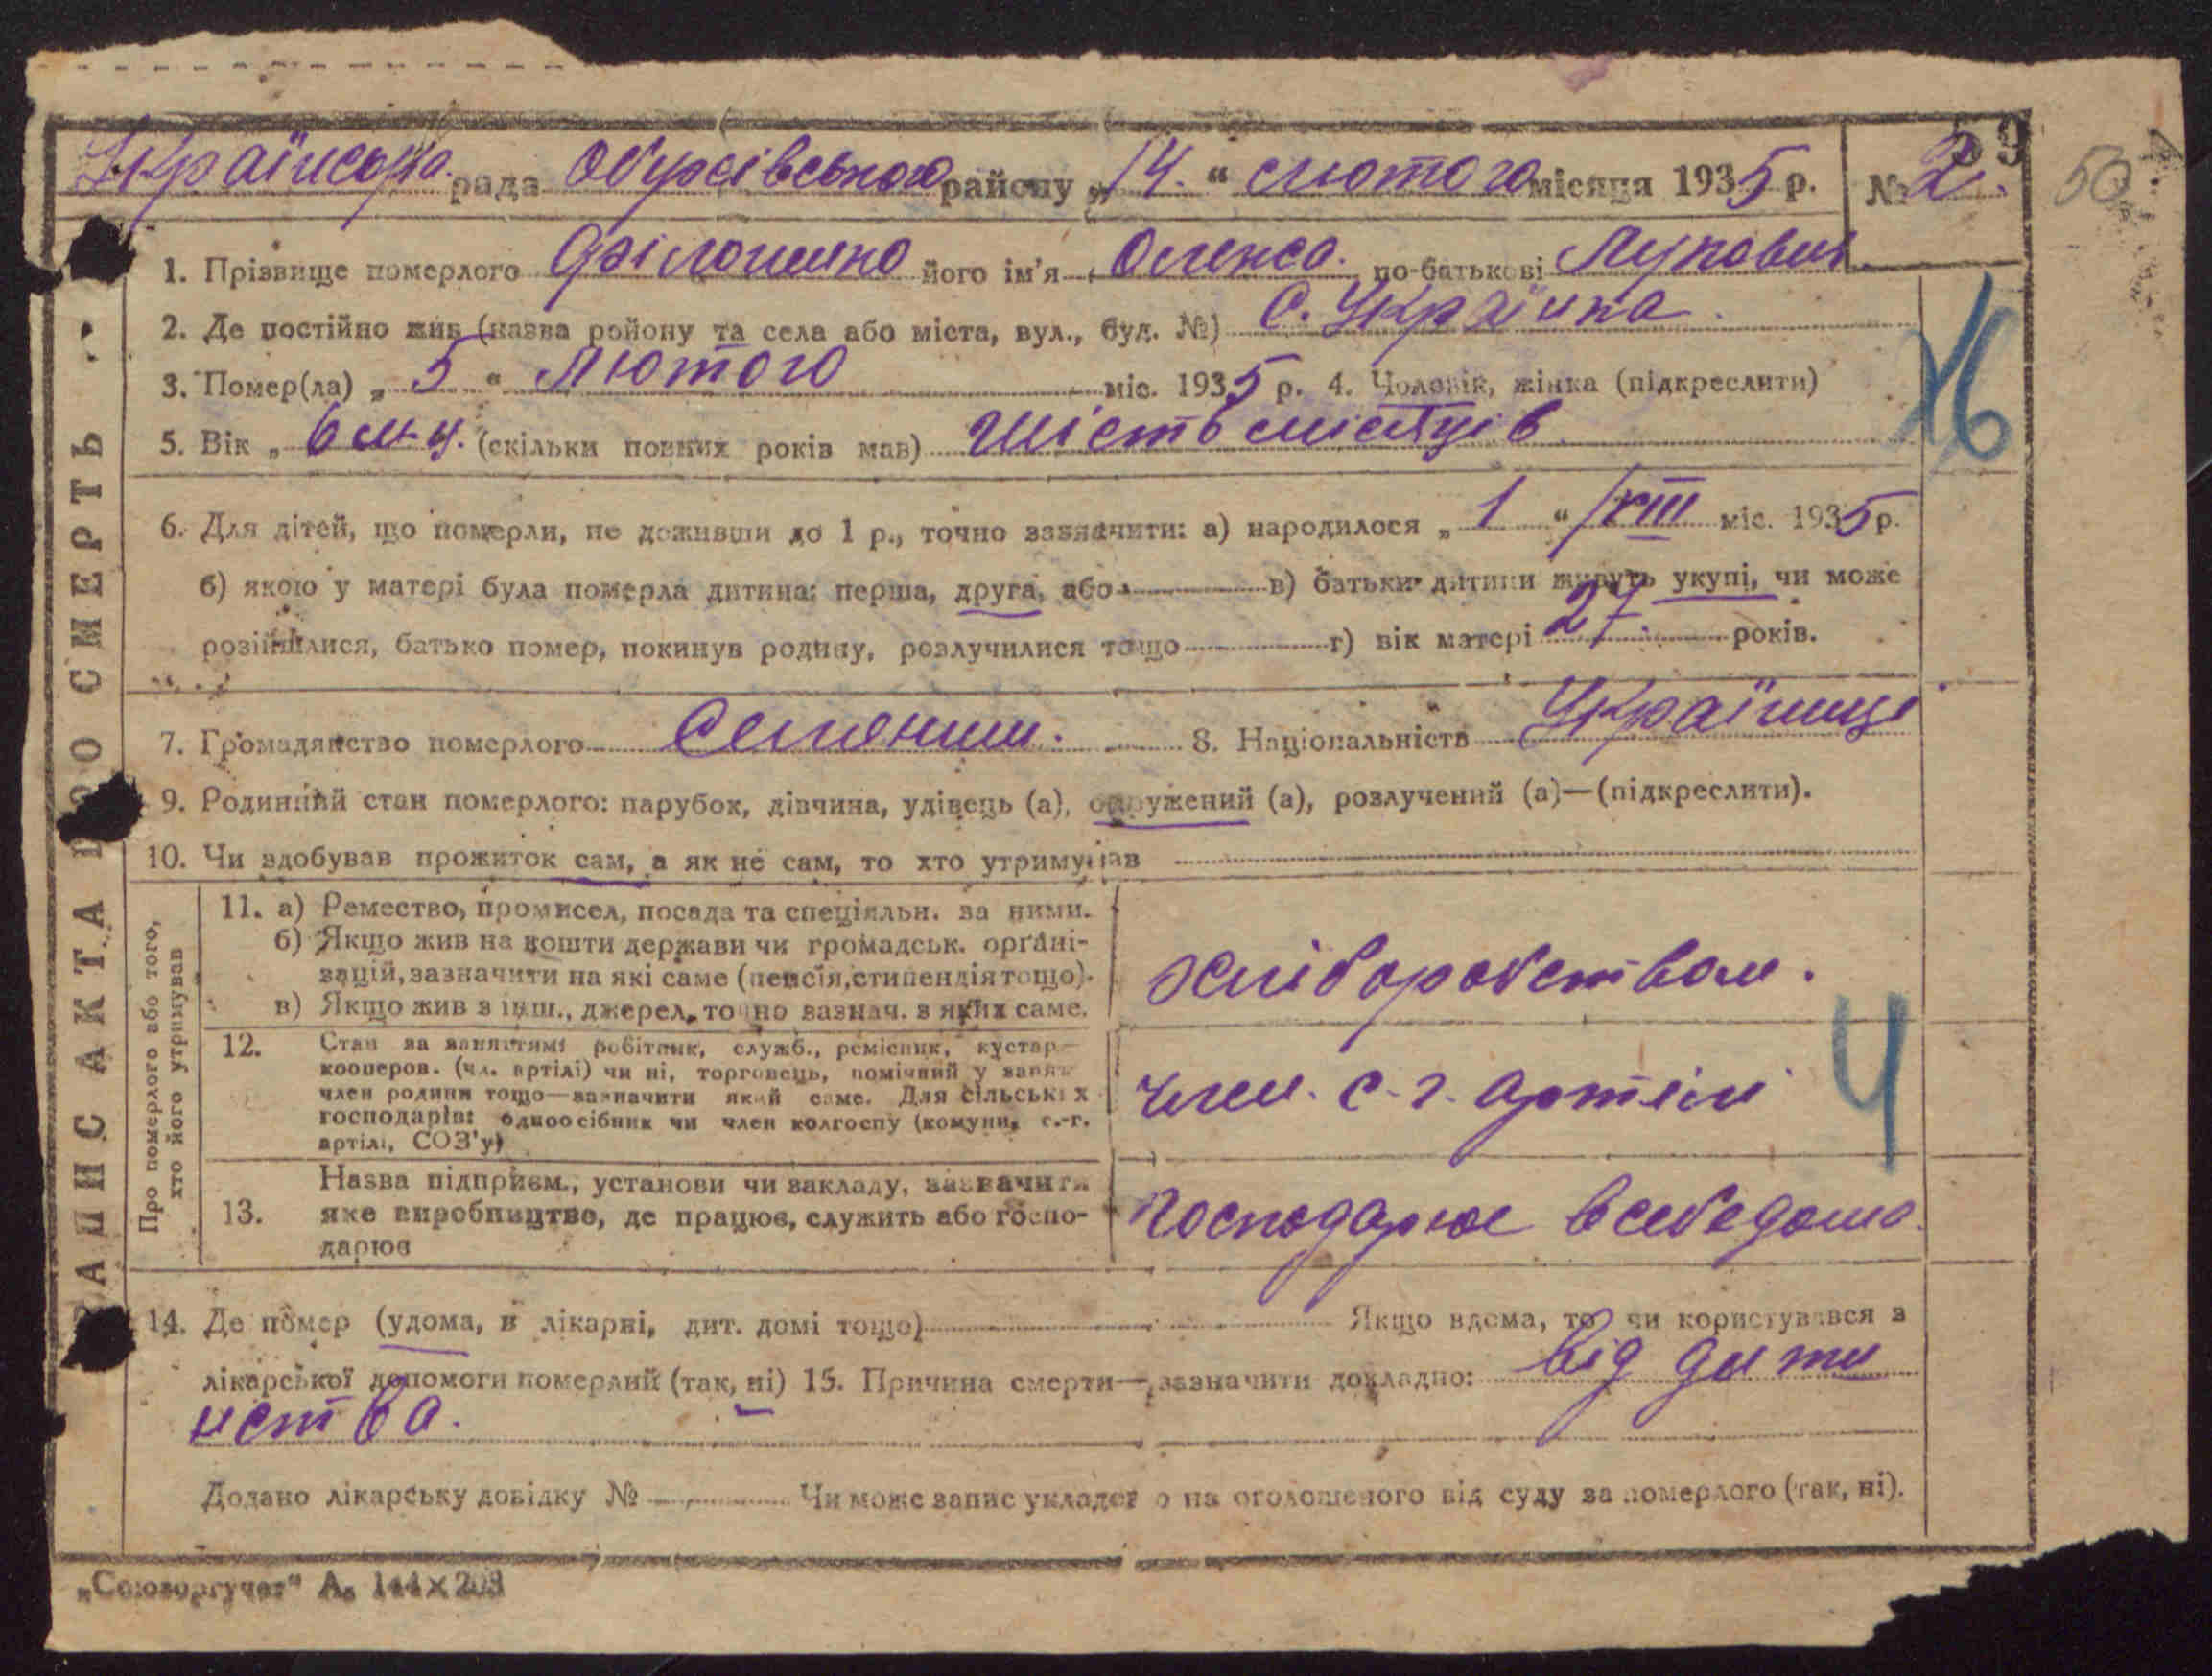 59
50
Українська рада Обухівського району „14.“ лютого місяця 1935 р. № 2.
1. Прізвище померлого Філоненко його ім'я Олекса. по-батькові Лукович
2. Де постійно жив (назва району та села або міста, вул., буд. №) С. Українка.
3. Помер(ла) „5“ лютого міс. 1935 р. 4. Чоловік, жінка (підкреслити)
16
5. Вік „ 6 м-ц. (скільки повних років мав) Шість місяців
6. Для дітей, що померли, не доживши до 1 р., точно зазначити: а) народилося „1“ /VIII міс. 1935 р.
б) якою у матері була померла дитина: перша, друга, або в) батьки дитини живуть укупі, чи може
розійшлися, батько помер, покинув родину, розлучилися тощо г) вік матері 27. років.
7. Громадянство померлого Селянин. 8. Національність Українці
9. Родинний стан померлого: парубок, дівчина, удівець (а), одружений (а), розлучений (а)—(підкреслити).
10. Чи здобував прожиток сам, а як не сам, то хто утримував
ЗАПИС АКТА ПРО СМЕРТЬ
Про померлого або того, хто його утримував
11. а) Ремество, промисел, посада та спеціяльн. за ними.
б) Якщо жив на кошти держави чи громадськ. органі-
зацій, зазначити на які саме (пенсія, стипендія тощо).
в) Якщо жив з інш., джерел, точно зазнач. з яких саме.
хліборобством.
12. Стан за заняттями робітник, служб., ремісник, кустар—
кооперов. (чл. артілі) чи ні, торговець, помічний у занят.
член родини тощо—зазначити який саме. Для сільських
господарів: одноосібник чи член колгоспу (комуни, с.-г.
артілі, СОЗ'у)
член. с-г. артілі
4
13. Назва підприєм., установи чи закладу, зазначити
яке виробництво, де працює, служить або госпо-
дарює
господарює в себе дома.
14. Де помер (удома, в лікарні, дит. домі тощо) Якщо вдома, то чи користувався з
лікарської допомоги померлий (так, ні) 15. Причина смерти—зазначити докладно: від дити
нства.
Додано лікарську довідку № Чи може запис укладено на оголошеного від суду за померлого (так, ні).
„Союзоргучет“ А₅ 144×203